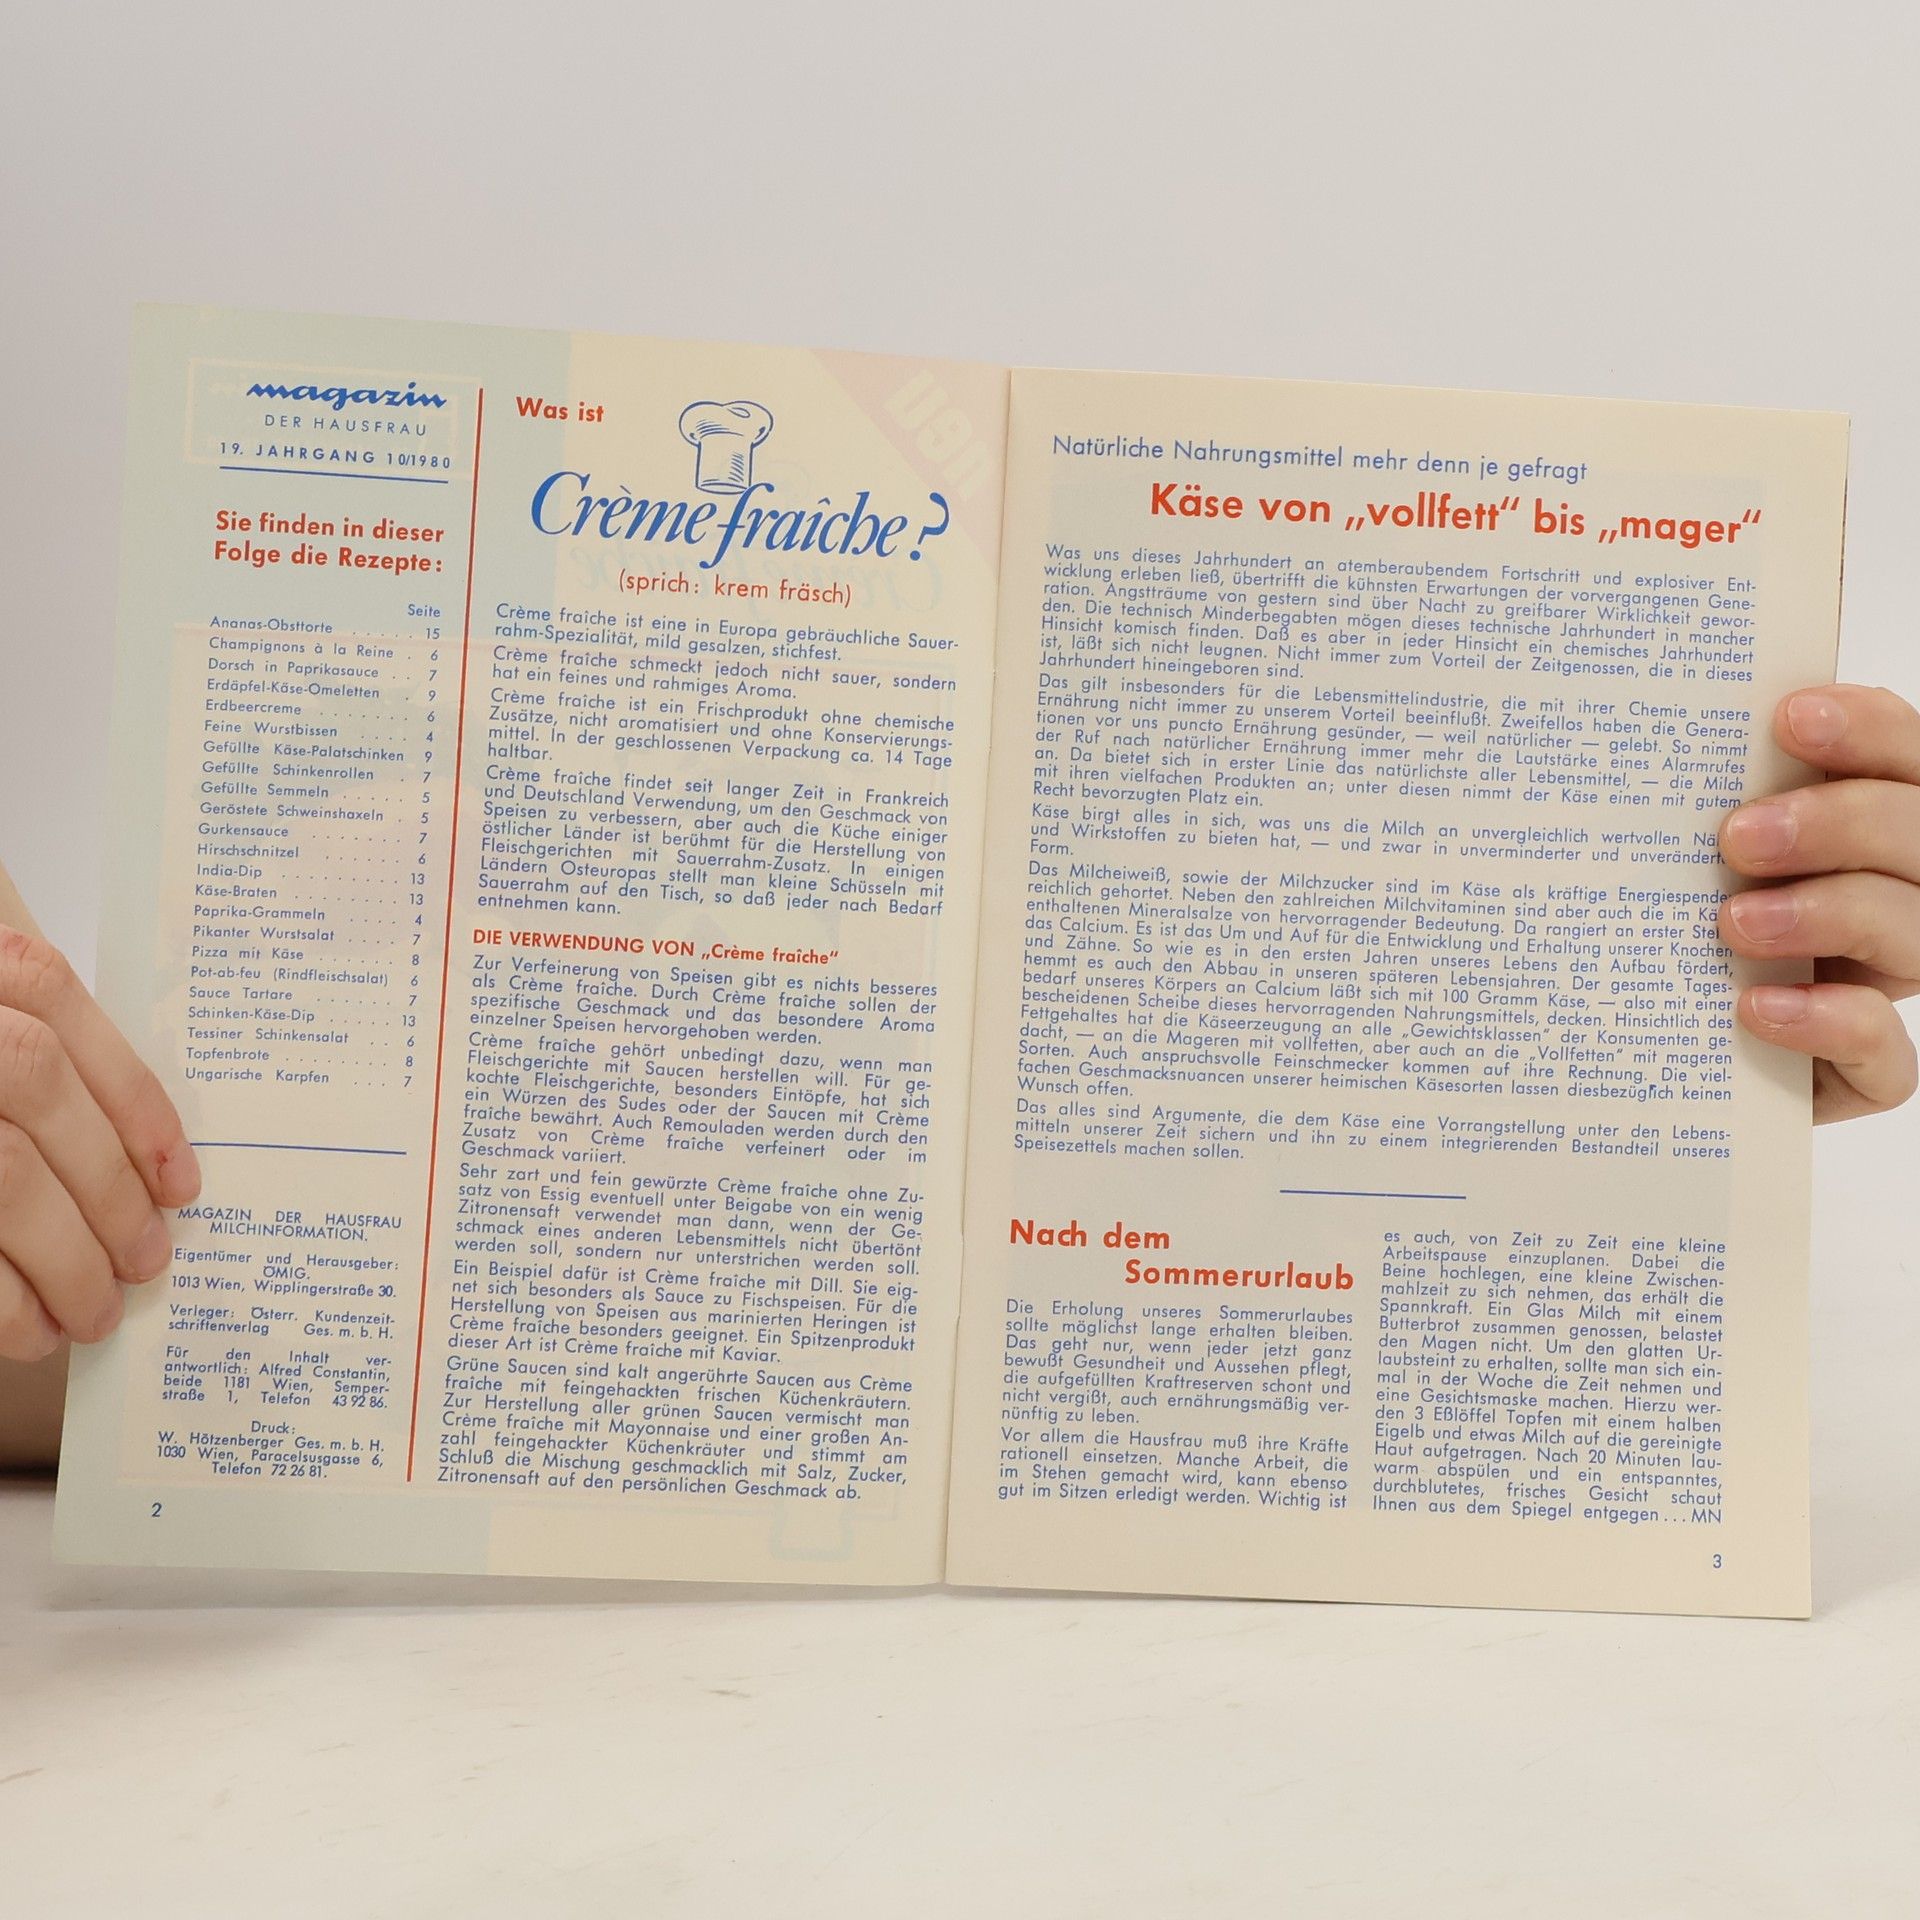 magazin
DER HAUSFRAU
19. JAHRGANG 10/1980
Sie finden in dieser
Folge die Rezepte:
Seite
Ananas-Obsttorte . . . . . 15
Champignons à la Reine . 6
Dorsch in Paprikasauce . . 7
Erdäpfel-Käse-Omeletten . 9
Erdbeercreme . . . . . . . 6
Feine Wurstbissen . . . . 4
Gefüllte Käse-Palatschinken 9
Gefüllte Schinkenrollen . 7
Gefüllte Semmeln . . . . . 5
Geröstete Schweinshaxeln . 5
Gurkensauce . . . . . . 7
Hirschschnitzel . . . . . . 6
India-Dip . . . . . . . . . 13
Käse-Braten . . . . . . . . 13
Paprika-Grammeln . . . . 4
Pikanter Wurstsalat . . . . 7
Pizza mit Käse . . . . . . 8
Pot-ab-feu (Rindfleischsalat) 6
Sauce Tartare . . . . . . 7
Schinken-Käse-Dip . . . . . 13
Tessiner Schinkensalat . . 6
Topfenbrote . . . . . . . 8
Ungarische Karpfen . . . 7
MAGAZIN DER HAUSFRAU
MILCHINFORMATION.
Eigentümer und Herausgeber:
ÖMIG.
1013 Wien, Wipplingerstraße 30.
Verleger: Österr. Kundenzeit-
schriftenverlag Ges. m. b. H.
Für den Inhalt ver-
antwortlich: Alfred Constantin,
beide 1181 Wien, Semper-
straße 1, Telefon 43 92 86.
Druck:
W. Hötzenberger Ges. m. b. H.
1030 Wien, Paracelsusgasse 6,
Telefon 72 26 81.
2
Was ist
Crème fraîche?
(sprich: krem fräsch)
Crème fraîche ist eine in Europa gebräuchliche Sauer-
rahm-Spezialität, mild gesalzen, stichfest.
Crème fraîche schmeckt jedoch nicht sauer, sondern
hat ein feines und rahmiges Aroma.
Crème fraîche ist ein Frischprodukt ohne chemische
Zusätze, nicht aromatisiert und ohne Konservierungs-
mittel. In der geschlossenen Verpackung ca. 14 Tage
haltbar.
Crème fraîche findet seit langer Zeit in Frankreich
und Deutschland Verwendung, um den Geschmack von
Speisen zu verbessern, aber auch die Küche einiger
östlicher Länder ist berühmt für die Herstellung von
Fleischgerichten mit Sauerrahm-Zusatz. In einigen
Ländern Osteuropas stellt man kleine Schüsseln mit
Sauerrahm auf den Tisch, so daß jeder nach Bedarf
entnehmen kann.
DIE VERWENDUNG VON „Crème fraîche“
Zur Verfeinerung von Speisen gibt es nichts besseres
als Crème fraîche. Durch Crème fraîche sollen der
spezifische Geschmack und das besondere Aroma
einzelner Speisen hervorgehoben werden.
Crème fraîche gehört unbedingt dazu, wenn man
Fleischgerichte mit Saucen herstellen will. Für ge-
kochte Fleischgerichte, besonders Eintöpfe, hat sich
ein Würzen des Sudes oder der Saucen mit Crème
fraîche bewährt. Auch Remouladen werden durch den
Zusatz von Crème fraîche verfeinert oder im
Geschmack variiert.
Sehr zart und fein gewürzte Crème fraîche ohne Zu-
satz von Essig eventuell unter Beigabe von ein wenig
Zitronensaft verwendet man dann, wenn der Ge-
schmack eines anderen Lebensmittels nicht übertönt
werden soll, sondern nur unterstrichen werden soll.
Ein Beispiel dafür ist Crème fraîche mit Dill. Sie eig-
net sich besonders als Sauce zu Fischspeisen. Für die
Herstellung von Speisen aus marinierten Heringen ist
Crème fraîche besonders geeignet. Ein Spitzenprodukt
dieser Art ist Crème fraîche mit Kaviar.
Grüne Saucen sind kalt angerührte Saucen aus Crème
fraîche mit feingehackten frischen Küchenkräutern.
Zur Herstellung aller grünen Saucen vermischt man
Crème fraîche mit Mayonnaise und einer großen An-
zahl feingehackter Küchenkräuter und stimmt am
Schluß die Mischung geschmacklich mit Salz, Zucker,
Zitronensaft auf den persönlichen Geschmack ab.
Natürliche Nahrungsmittel mehr denn je gefragt
Käse von „vollfett“ bis „mager“
Was uns dieses Jahrhundert an atemberaubendem Fortschritt und explosiver Ent-
wicklung erleben ließ, übertrifft die kühnsten Erwartungen der vorvergangenen Gene-
ration. Angstträume von gestern sind über Nacht zu greifbarer Wirklichkeit gewor-
den. Die technisch Minderbegabten mögen dieses technische Jahrhundert in mancher
Hinsicht komisch finden. Daß es aber in jeder Hinsicht ein chemisches Jahrhundert
ist, läßt sich nicht leugnen. Nicht immer zum Vorteil der Zeitgenossen, die in dieses
Jahrhundert hineingeboren sind.
Das gilt insbesonders für die Lebensmittelindustrie, die mit ihrer Chemie unsere
Ernährung nicht immer zu unserem Vorteil beeinflußt. Zweifellos haben die Genera-
tionen vor uns puncto Ernährung gesünder, — weil natürlicher — gelebt. So nimmt
der Ruf nach natürlicher Ernährung immer mehr die Lautstärke eines Alarmrufes
an. Da bietet sich in erster Linie das natürlichste aller Lebensmittel, — die Milch
mit ihren vielfachen Produkten an; unter diesen nimmt der Käse einen mit gutem
Recht bevorzugten Platz ein.
Käse birgt alles in sich, was uns die Milch an unvergleichlich wertvollen Nä
und Wirkstoffen zu bieten hat, — und zwar in unverminderter und unverändert
Form.
Das Milcheiweiß, sowie der Milchzucker sind im Käse als kräftige Energiespende
reichlich gehortet. Neben den zahlreichen Milchvitaminen sind aber auch die im Kä
enthaltenen Mineralsalze von hervorragender Bedeutung. Da rangiert an erster Stel
das Calcium. Es ist das Um und Auf für die Entwicklung und Erhaltung unserer Knochen
und Zähne. So wie es in den ersten Jahren unseres Lebens den Aufbau fördert,
hemmt es auch den Abbau in unseren späteren Lebensjahren. Der gesamte Tages-
bedarf unseres Körpers an Calcium läßt sich mit 100 Gramm Käse, — also mit einer
bescheidenen Scheibe dieses hervorragenden Nahrungsmittels, decken. Hinsichtlich des
Fettgehaltes hat die Käseerzeugung an alle „Gewichtsklassen“ der Konsumenten ge-
dacht, — an die Mageren mit vollfetten, aber auch an die „Vollfetten“ mit mageren
Sorten. Auch anspruchsvolle Feinschmecker kommen auf ihre Rechnung. Die viel-
fachen Geschmacksnuancen unserer heimischen Käsesorten lassen diesbezüglich keinen
Wunsch offen.
Das alles sind Argumente, die dem Käse eine Vorrangstellung unter den Lebens-
mitteln unserer Zeit sichern und ihn zu einem integrierenden Bestandteil unseres
Speisezettels machen sollen.
Nach dem
Sommerurlaub
Die Erholung unseres Sommerurlaubes
sollte möglichst lange erhalten bleiben.
Das geht nur, wenn jeder jetzt ganz
bewußt Gesundheit und Aussehen pflegt,
die aufgefüllten Kraftreserven schont und
nicht vergißt, auch ernährungsmäßig ver-
nünftig zu leben.
Vor allem die Hausfrau muß ihre Kräfte
rationell einsetzen. Manche Arbeit, die
im Stehen gemacht wird, kann ebenso
gut im Sitzen erledigt werden. Wichtig ist
es auch, von Zeit zu Zeit eine kleine
Arbeitspause einzuplanen. Dabei die
Beine hochlegen, eine kleine Zwischen-
mahlzeit zu sich nehmen, das erhält die
Spannkraft. Ein Glas Milch mit einem
Butterbrot zusammen genossen, belastet
den Magen nicht. Um den glatten Ur-
laubsteint zu erhalten, sollte man sich ein-
mal in der Woche die Zeit nehmen und
eine Gesichtsmaske machen. Hierzu wer-
den 3 Eßlöffel Topfen mit einem halben
Eigelb und etwas Milch auf die gereinigte
Haut aufgetragen. Nach 20 Minuten lau-
warm abspülen und ein entspanntes,
durchblutetes, frisches Gesicht schaut
Ihnen aus dem Spiegel entgegen . . . MN
3